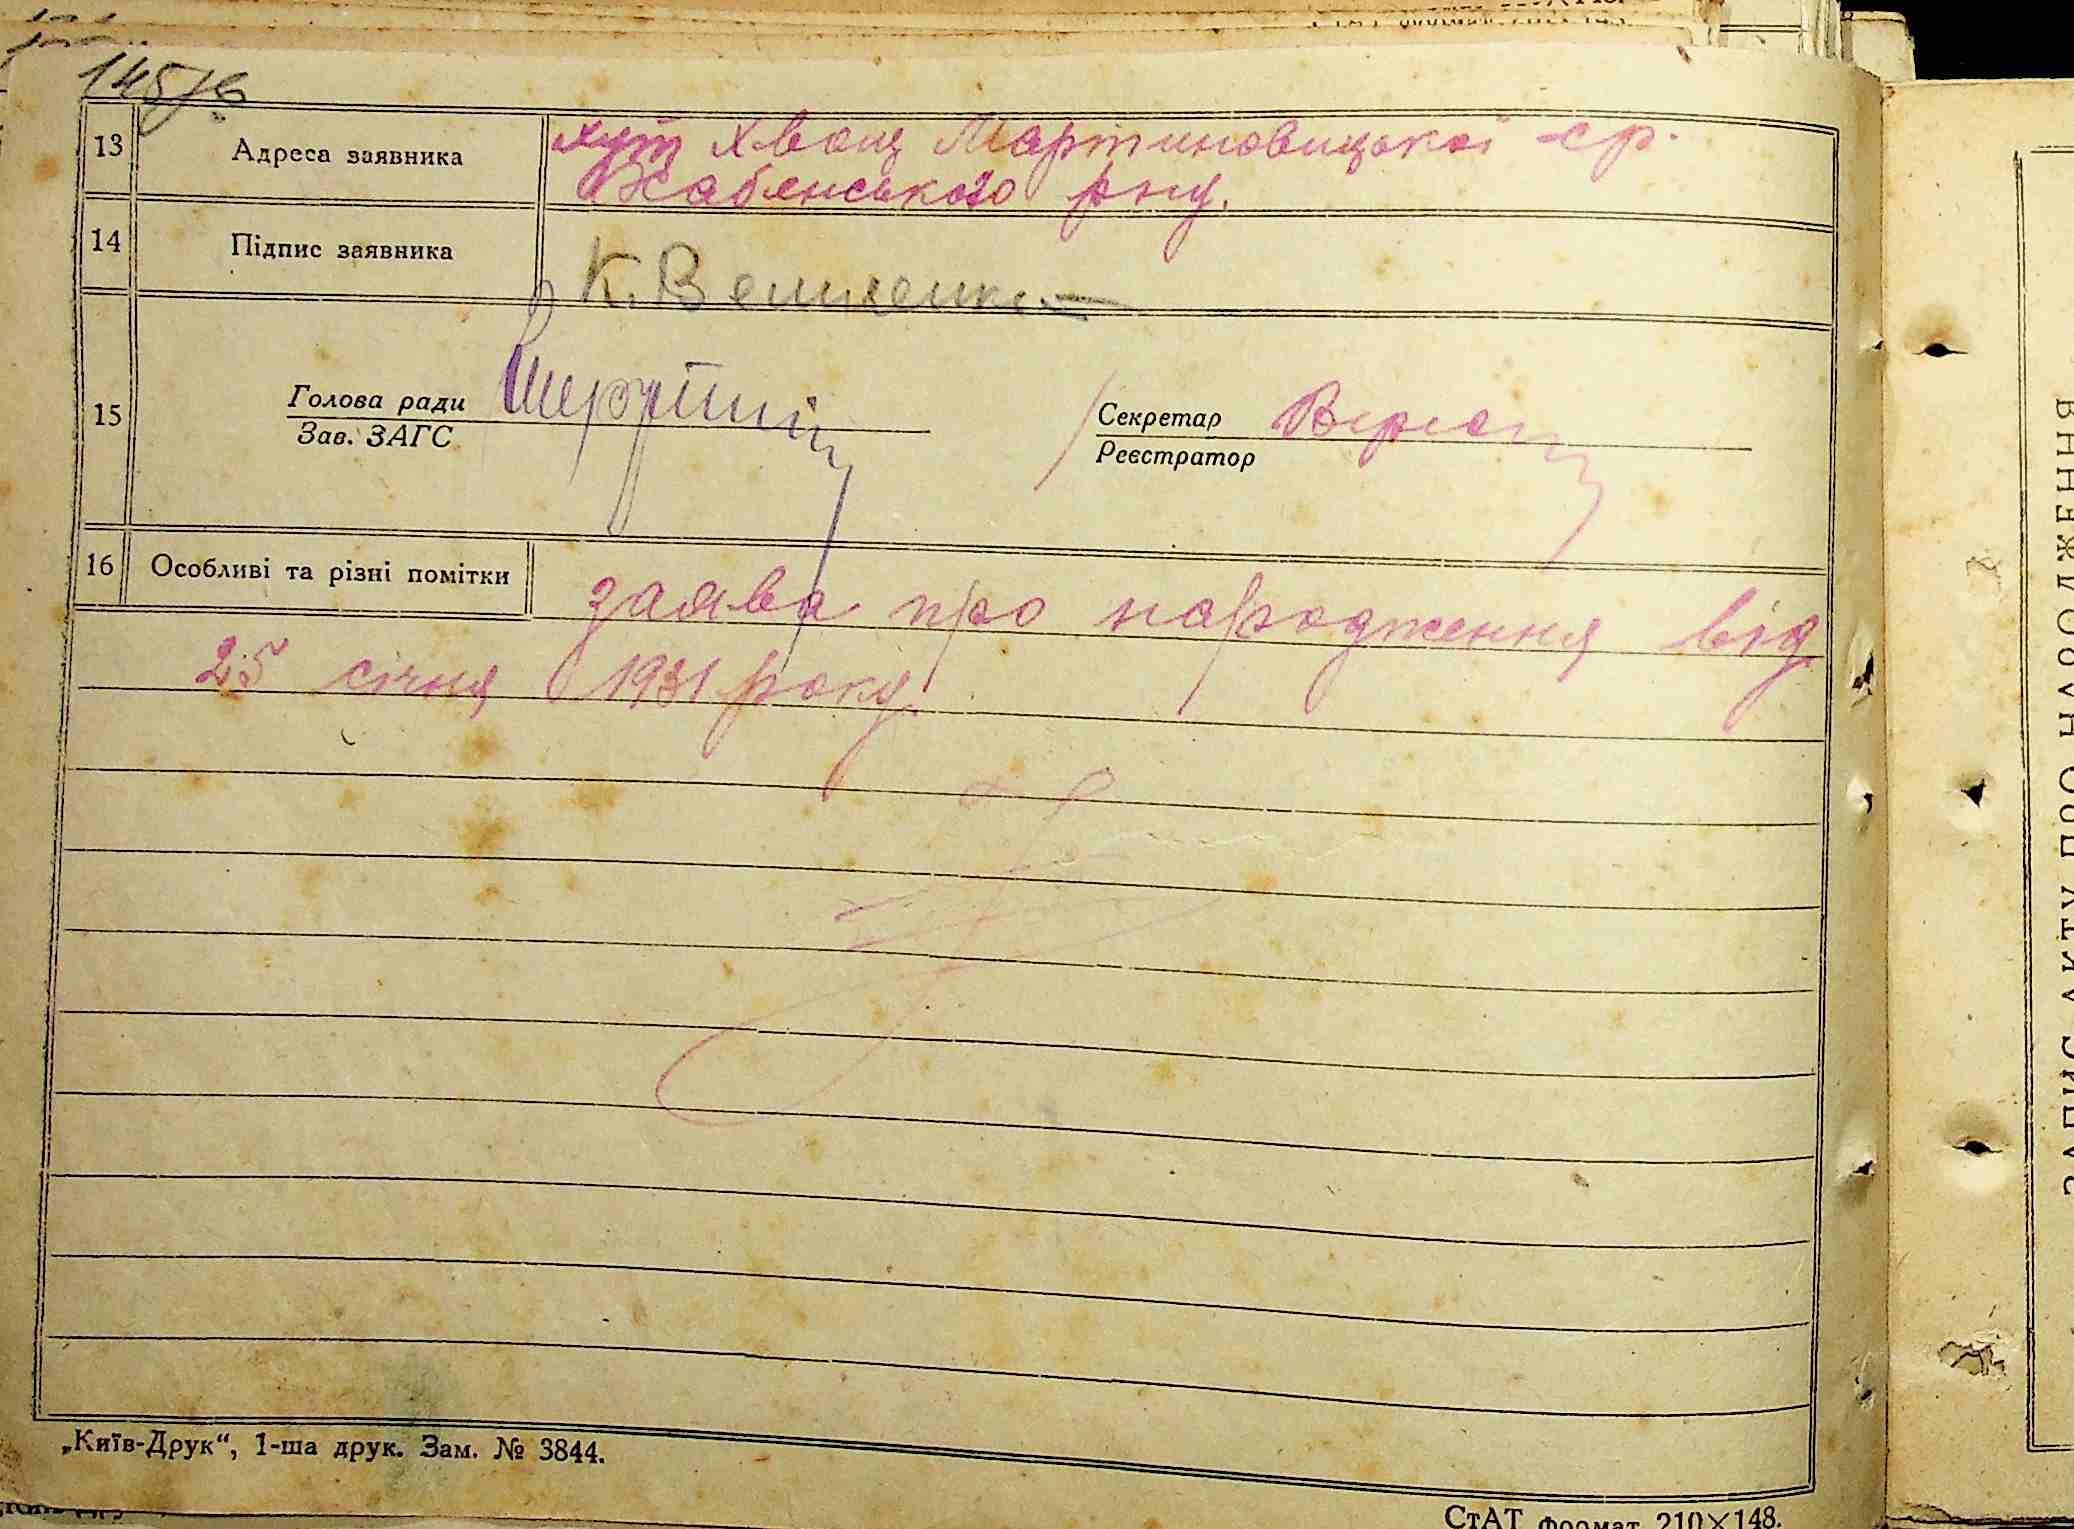 13 Адреса заявника хут Хвощ Мартиновицької с-р.
Хабенського р-ну.
14 Підпис заявника К. Величенко
15 Голова ради Секретар
Зав. ЗАГС Реєстратор
16 Особливі та різні помітки заява про народження від
25 січня 1931 року.
„Київ-Друк“, 1-ша друк. Зам. № 3844.
СтАТ формат 210×148.
ЗАПИС АКТУ ПРО НАРОДЖЕННЯ